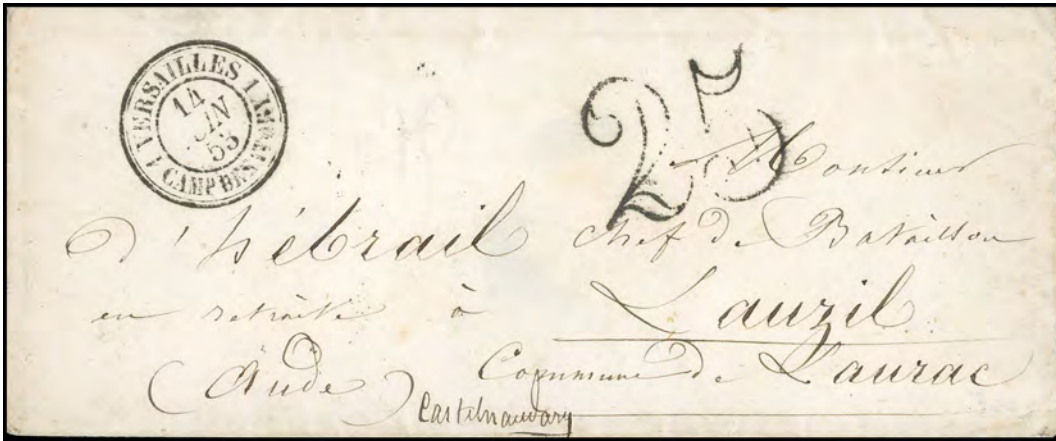 VERSAILLES
CAMP DE
14
JUIN
53
25
Monsieur
d'hébrail chef de Bataillon
en retraite à Lauzil
Commune de Laurac
(Aude)
Castelnaudary